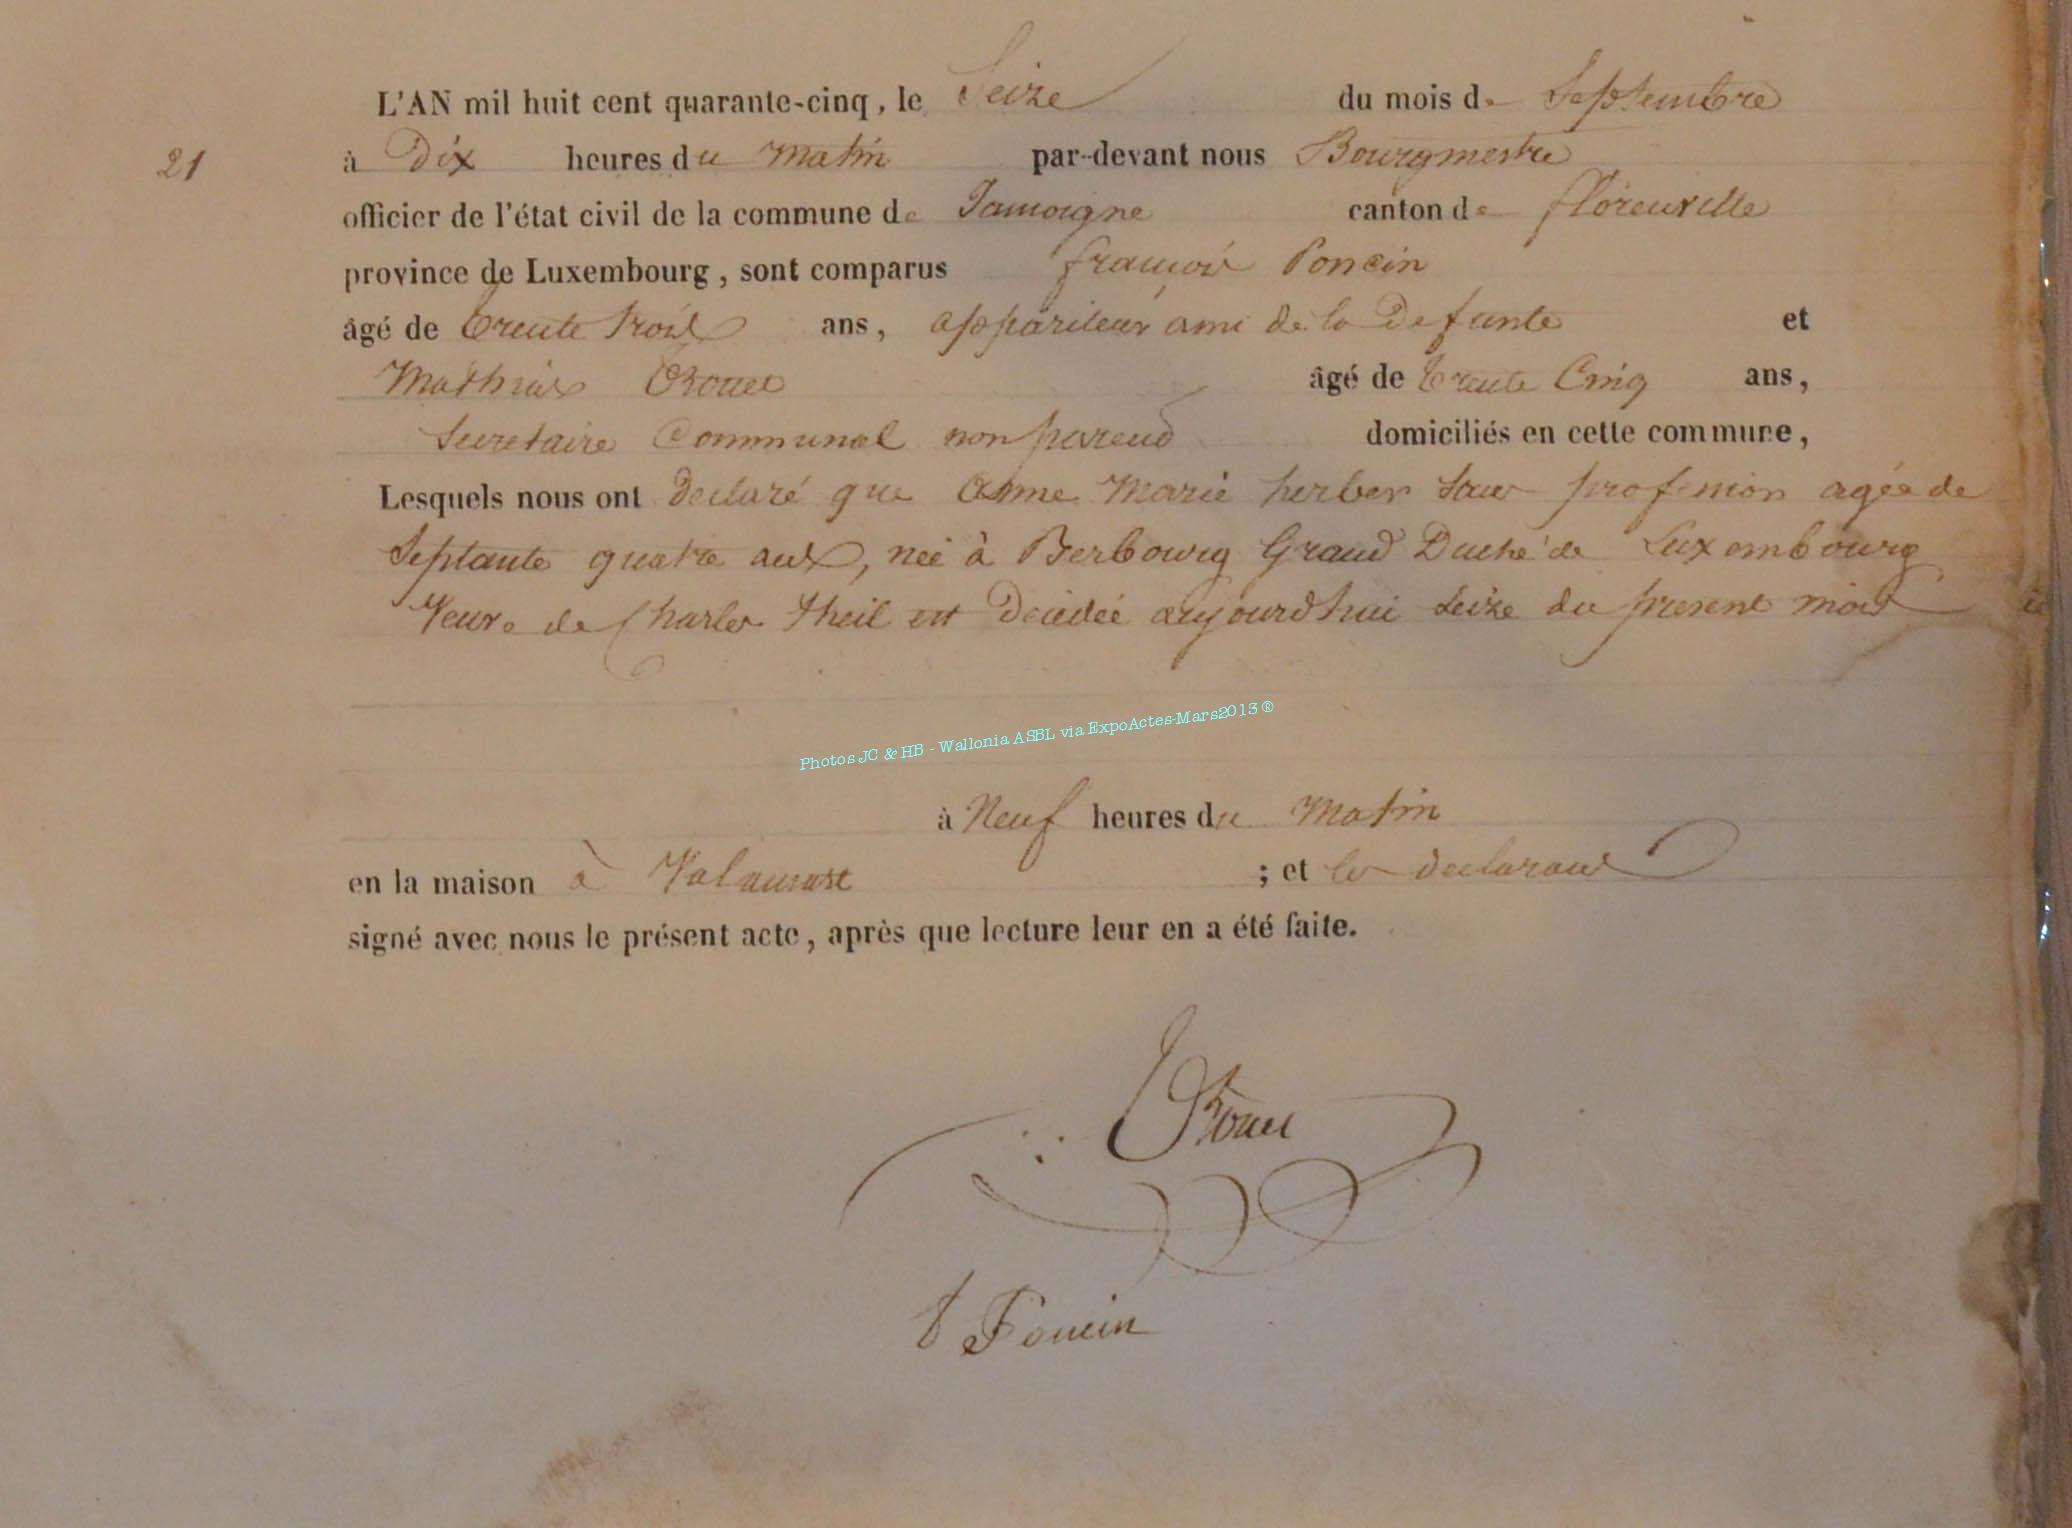 L'AN mil huit cent quarante-cinq, le Seize du mois de Septembre
21
à Dix heures du Matin par-devant nous Bourgmestre
officier de l'état civil de la commune de Jamoigne canton de florenville
province de Luxembourg, sont comparus françois Poncin
âgé de trente trois ans, appariteur ami de la Defunte et
Mathias âgé de trente Cinq ans,
Secretaire Communal non parend domiciliés en cette commune,
Lesquels nous ont declaré que Anne Marie herber Sans profession agée de
Septante quatre ans, neé à Berbourg Grand Duché de Luxembourg
Veuve de Charles theil est Décedeé aujourd'hui seize du present mois
Photos JC & HB - Wallonia ASBL via ExpoActes-Mars2013 ®
à Neuf heures du Matin
en la maison à Valansart ; et les declarans
signé avec nous le présent acte, après que lecture leur en a été faite.
Poncin